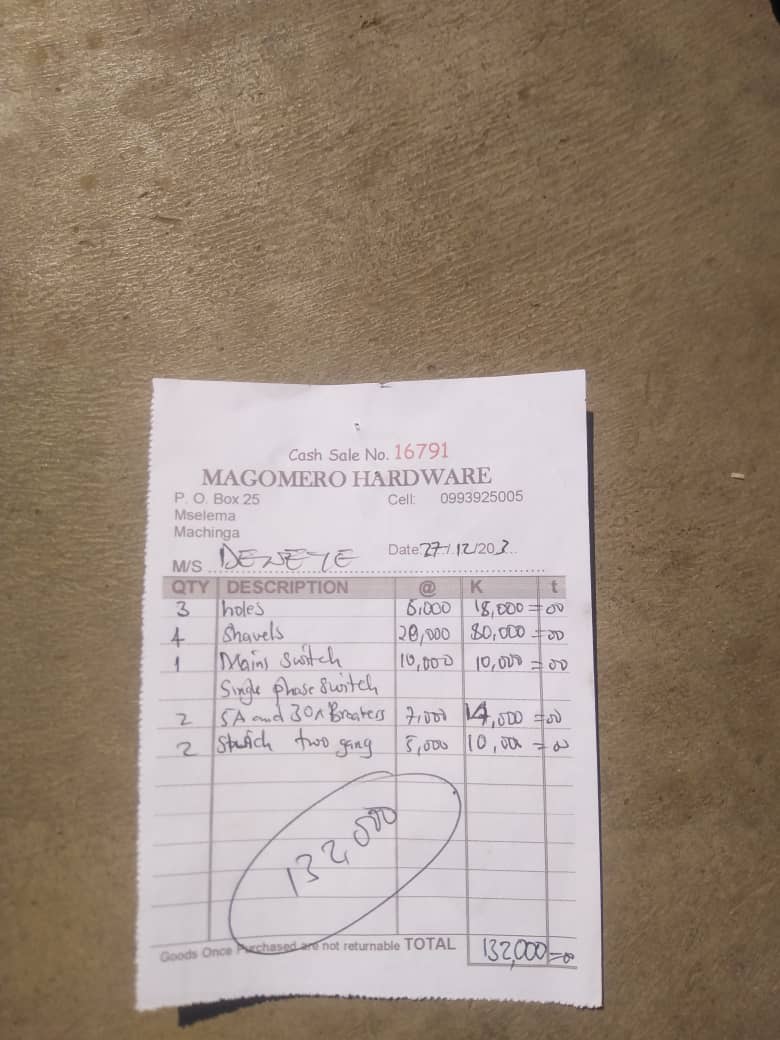 Cash Sale No. 16791
MAGOMERO HARDWARE
P. O. Box 25 Cell: 0993925005
Mselema
Machinga
Date: 27/12/203
M/S
QTY DESCRIPTION @ K t
3 holes 6,000 18,000=00
4 Shavels 20,000 80,000=00
1 Mains Switch 10,000 10,000=00
Single phase Switch
2 5A and 30A Breaters 7,000 14,000=00
2 two gang 5,000 10,000=00
132,000
Goods Once Purchased are not returnable TOTAL 132,000=00